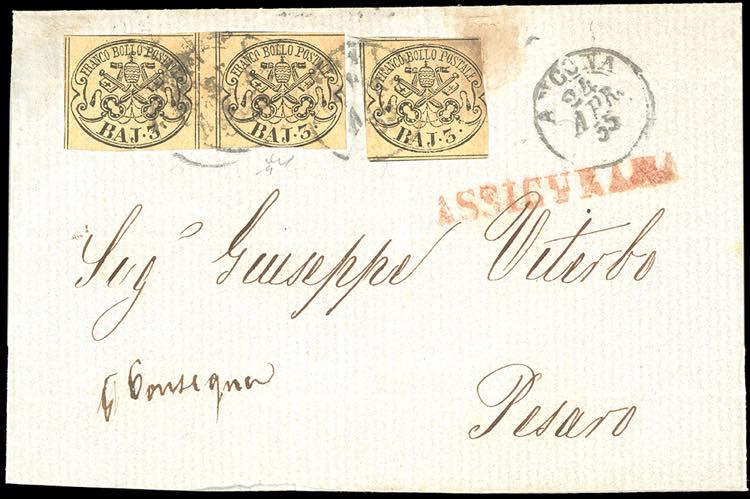 FRANCO BOLLO POSTALE
BAJ. 3.
FRANCO BOLLO POSTALE
BAJ. 3.
FRANCO BOLLO POSTALE
BAJ. 3.
ANCONA
24
APR.
55
ASSICURATA
Sig.r Giuseppe Viterbo
Consegna
Pesaro